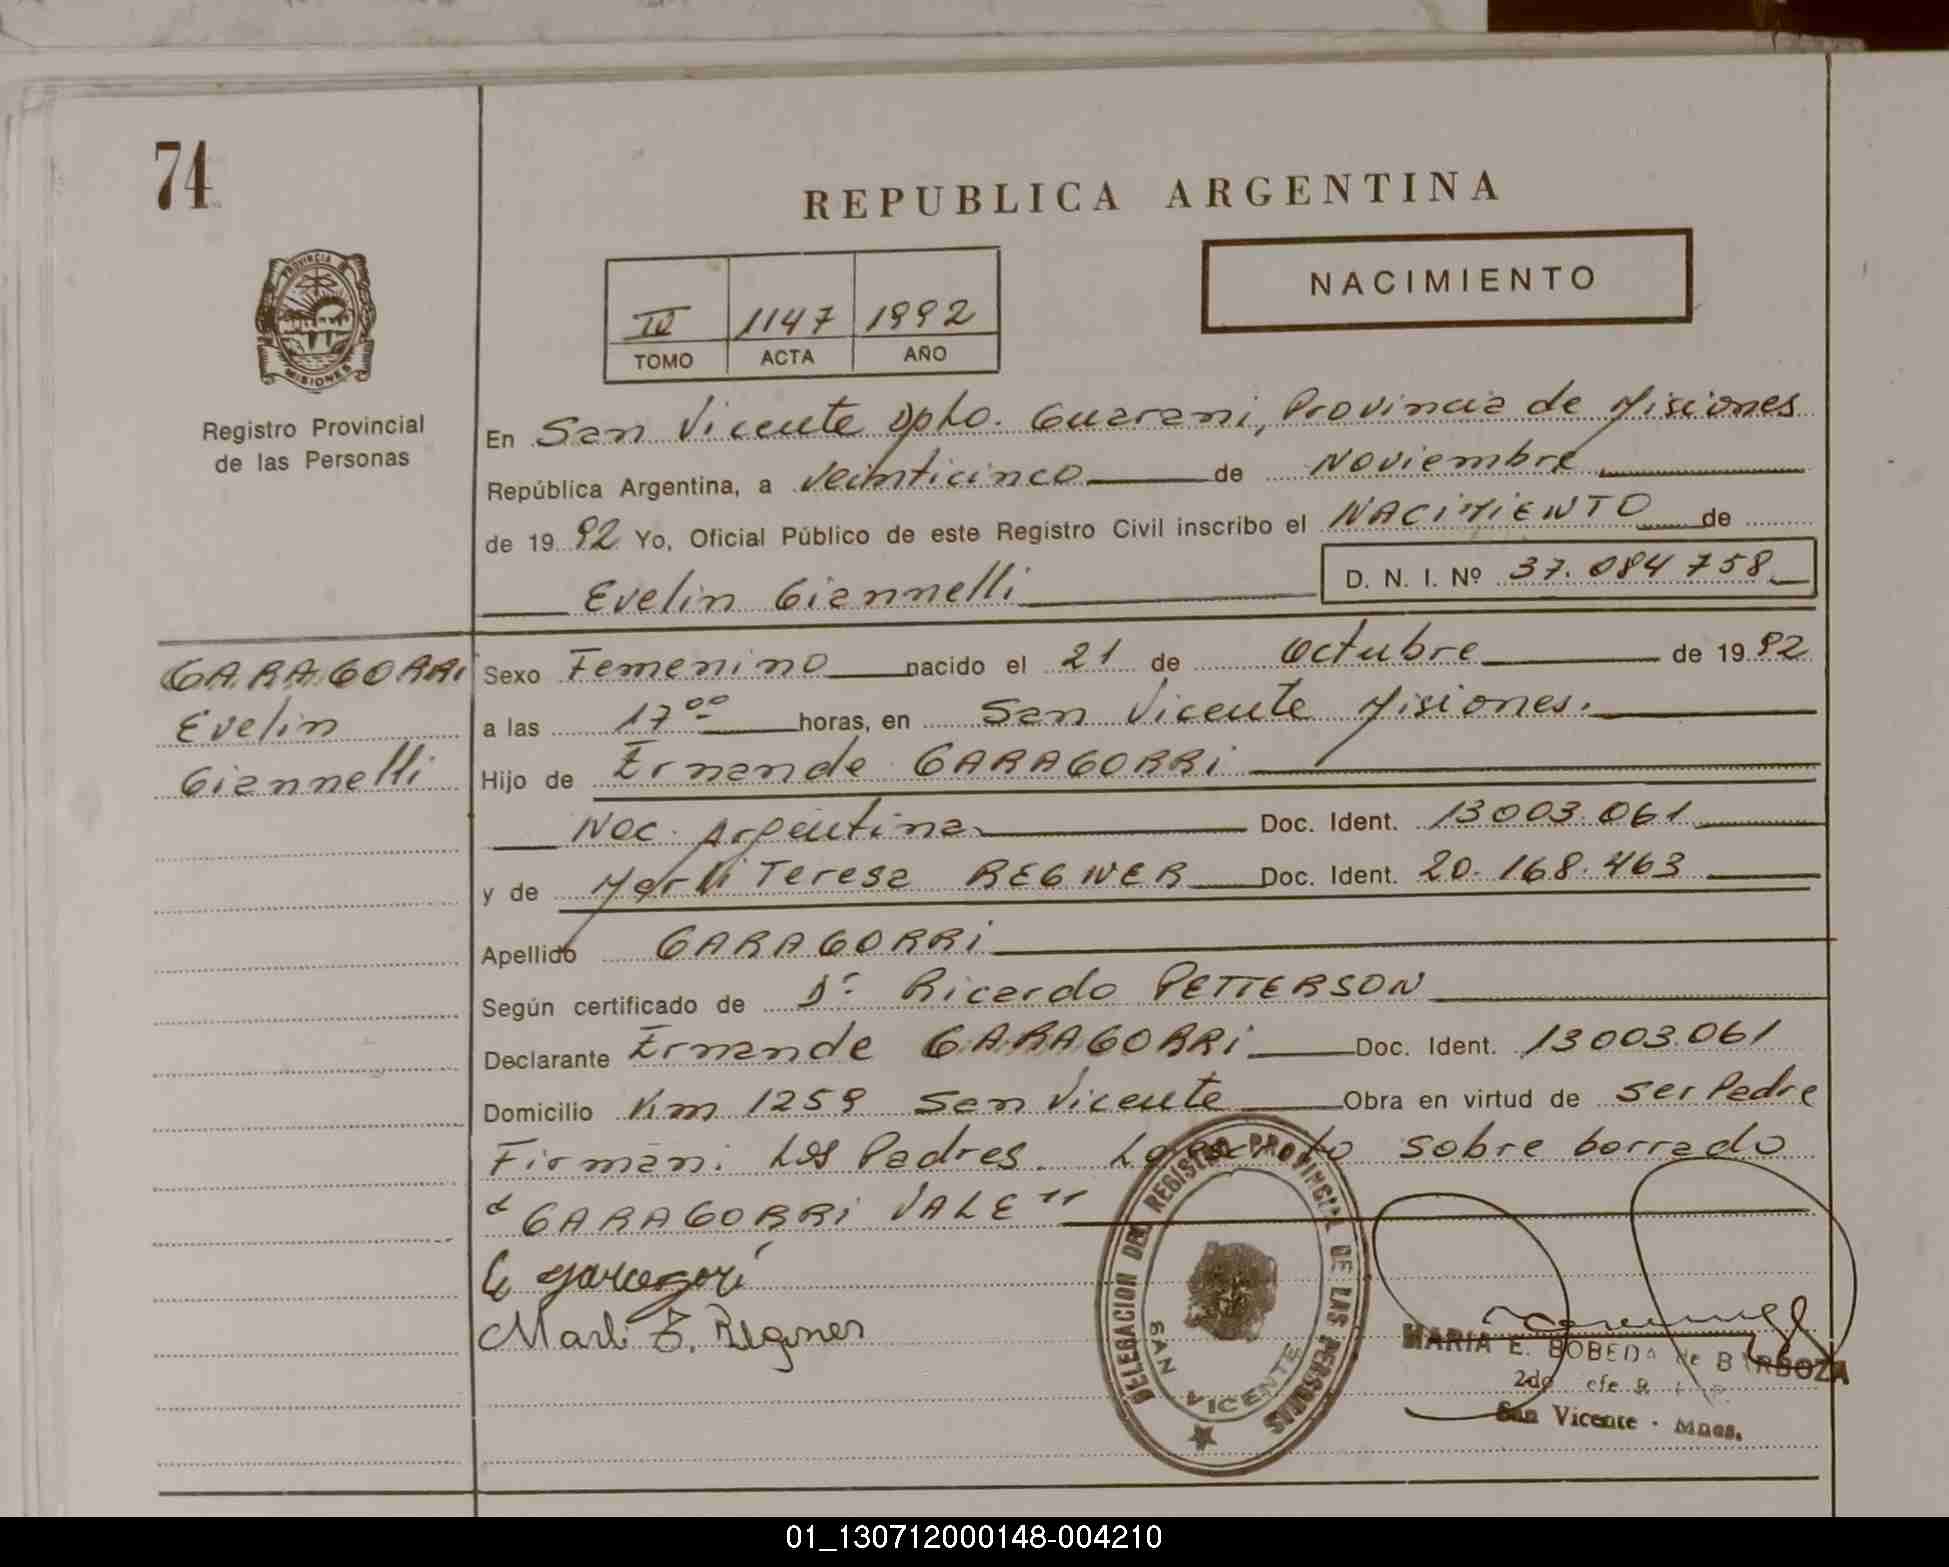 74
REPUBLICA ARGENTINA
PROVINCIA
MISIONES
Registro Provincial
de las Personas
IV 1147 1992
TOMO ACTA AÑO
NACIMIENTO
En San Vicente Dpto. Guarani, Provincia de Misiones
República Argentina, a Veinticinco de Noviembre
de 1992 Yo, Oficial Público de este Registro Civil inscribo el NACIMIENTO de
Evelin Giannelli D. N. I. Nº 37.084758
GARAGORRi
Evelin
Giannelli
Sexo Femenino nacido el 21 de Octubre de 1992
a las 17 00 horas, en San Vicente Misiones.
Hijo de Ernande GARAGORRi
Nac. Argentina Doc. Ident. 13003.061
y de Marli Teresa REGNER Doc. Ident. 20.168.463
Apellido GARAGORRi
Según certificado de Dr. Ricardo PETTERSON
Declarante Ernande GARAGORRi Doc. Ident. 13003.061
Domicilio Km 1259 San Vicente Obra en virtud de ser Padre
Firman: Los Padres. sobre borrado
"GARAGORRi VALE"
E garagori
Marli T. Regner
DELEGACION DEL REGISTRO PROVINCIAL DE LAS PERSONAS
SAN VICENTE
MARIA E. BOBEDA de BARBOZA
San Vicente - Mnes.
01_130712000148-004210